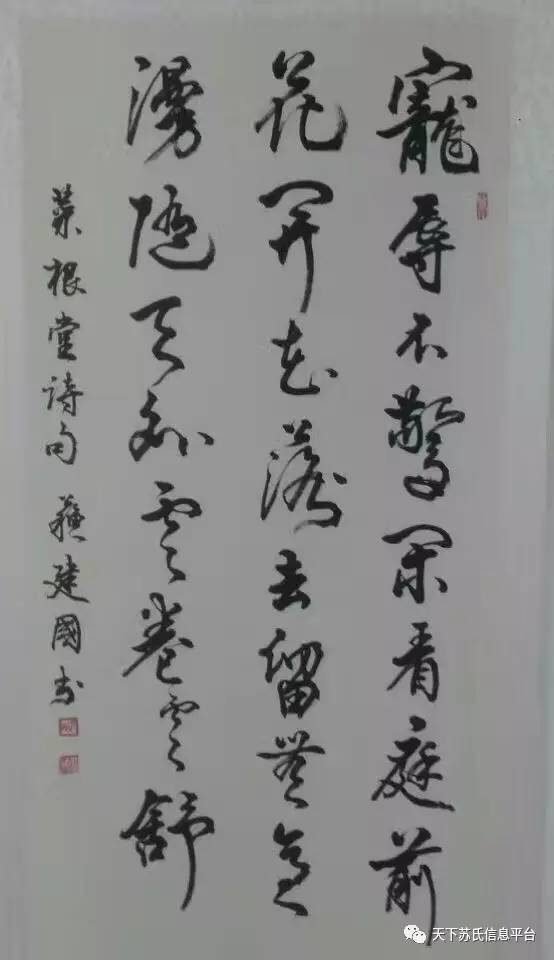 寵辱不驚閑看庭前
花開花落去留無意
漫隨天外雲卷雲舒
菜根堂诗句 蘇建國书
天下苏氏信息平台